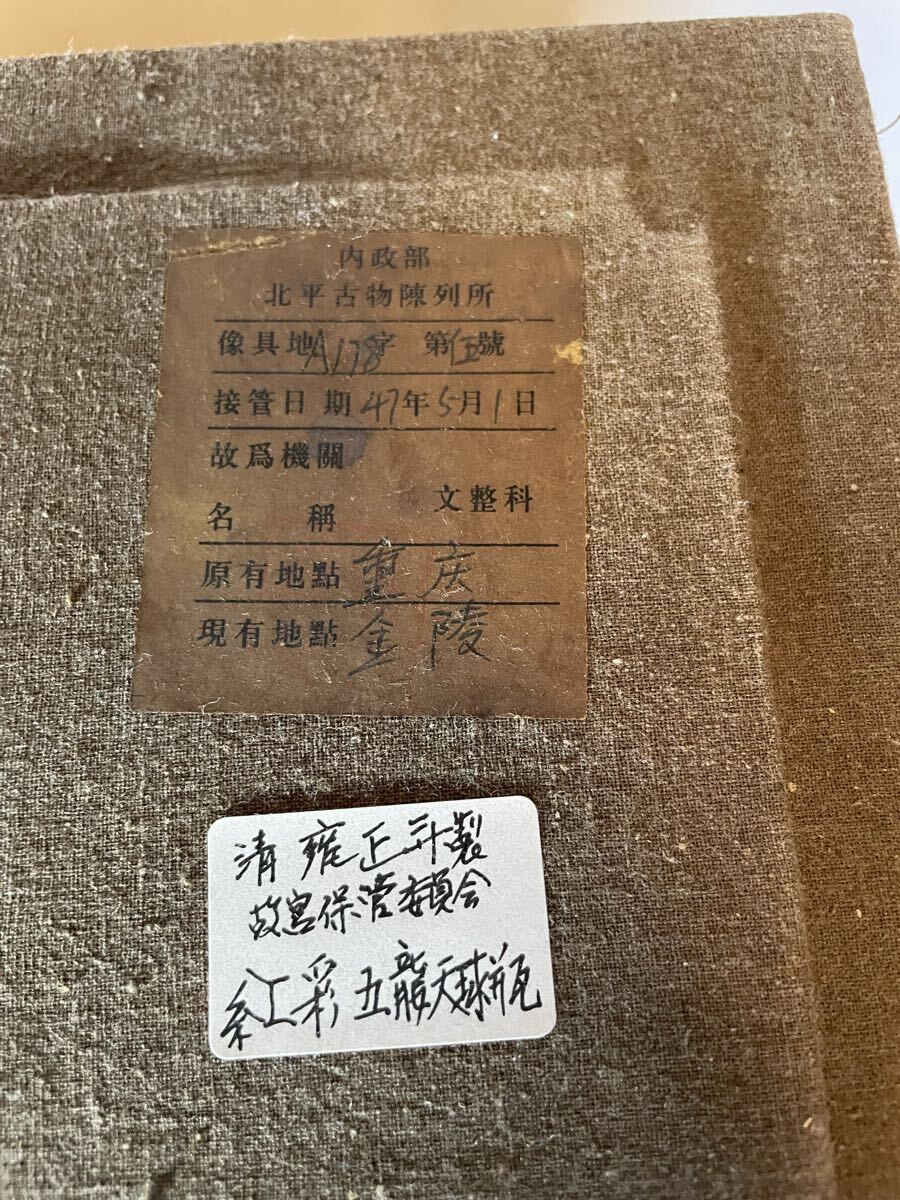 内政部
北平古物陳列所
像具地A178字 第伍號
接管日期47年5月1日
故爲機關
文整科
名稱
原有地點重庆
現有地點金陵
清雍正年製
故宮保管委員会
紅彩五龍天球瓶